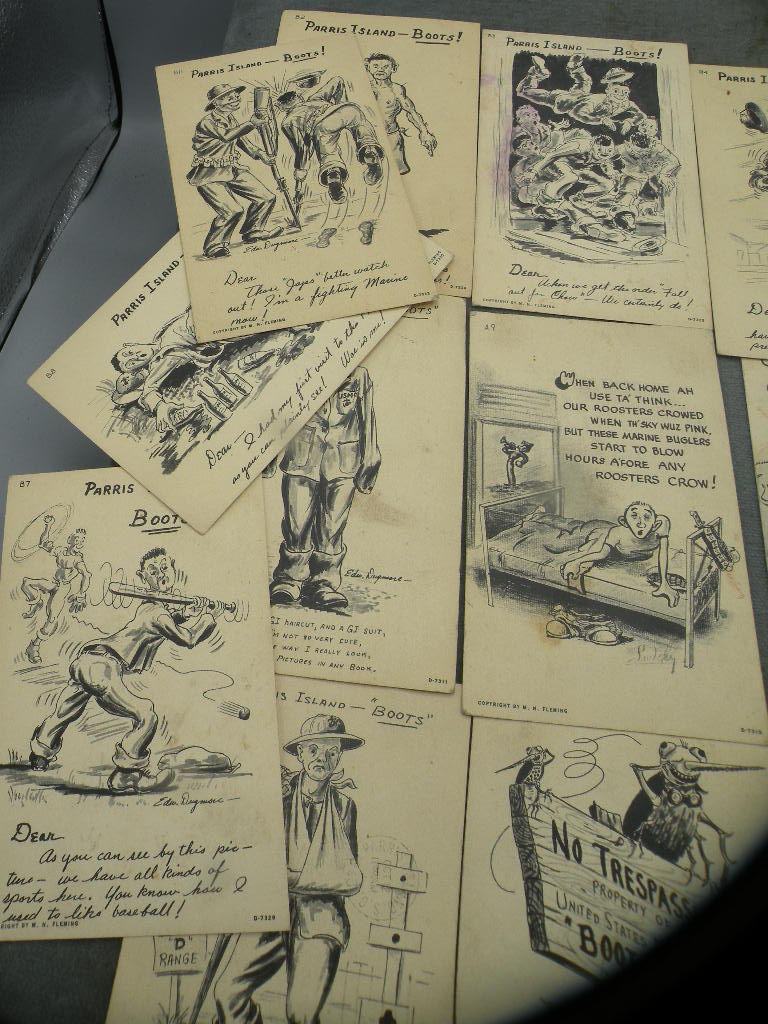 82
PARRIS ISLAND — BOOTS!
811
PARRIS ISLAND — BOOTS!
Edw. Dugmore —
Dear
Those "Japs" better watch
out! I'm a fighting Marine
now!
COPYRIGHT BY W. N. FLEMING
83
PARRIS ISLAND — BOOTS!
Dear
When we get the order "Fall
out for Chow" We certainly do!
COPYRIGHT BY W. N. FLEMING
84
PARRIS I
De
ha
pre
88
PARRIS ISLAND
Dear — I had my first visit to the
as you can plainly see! Woe is me!
OTS"
USMC
Edw. Dugmore —
GI HAIRCUT, AND A GI SUIT,
'M NOT SO VERY CUTE,
E WAY I REALLY LOOK,
PICTURES IN ANY BOOK.
D-7311
89
WHEN BACK HOME AH
USE TA' THINK...
OUR ROOSTERS CROWED
WHEN TH' SKY WUZ PINK,
BUT THESE MARINE BUGLERS
START TO BLOW
HOURS AFORE ANY
ROOSTERS CROW!
COPYRIGHT BY W. N. FLEMING
87
PARRIS
BOOTS
Edw. Dugmore —
Dear
As you can see by this pic-
ture — we have all kinds of
sports here. You know how I
used to like baseball!
RIGHT BY W. N. FLEMING
D-7329
IS ISLAND — "BOOTS"
"D"
RANGE
NO TRESPASS
PROPERTY OF
UNITED STATES
"BOOT